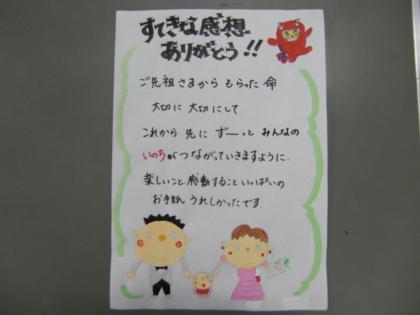 すてきな感想
ありがとう!!
ご先祖さまから もらった 命
大切に 大切にして
これから 先に ずーっと みんなの
いのちがつながっていきますように.
楽しいこと 感動すること いっぱいの
お手紙 うれしかったです.